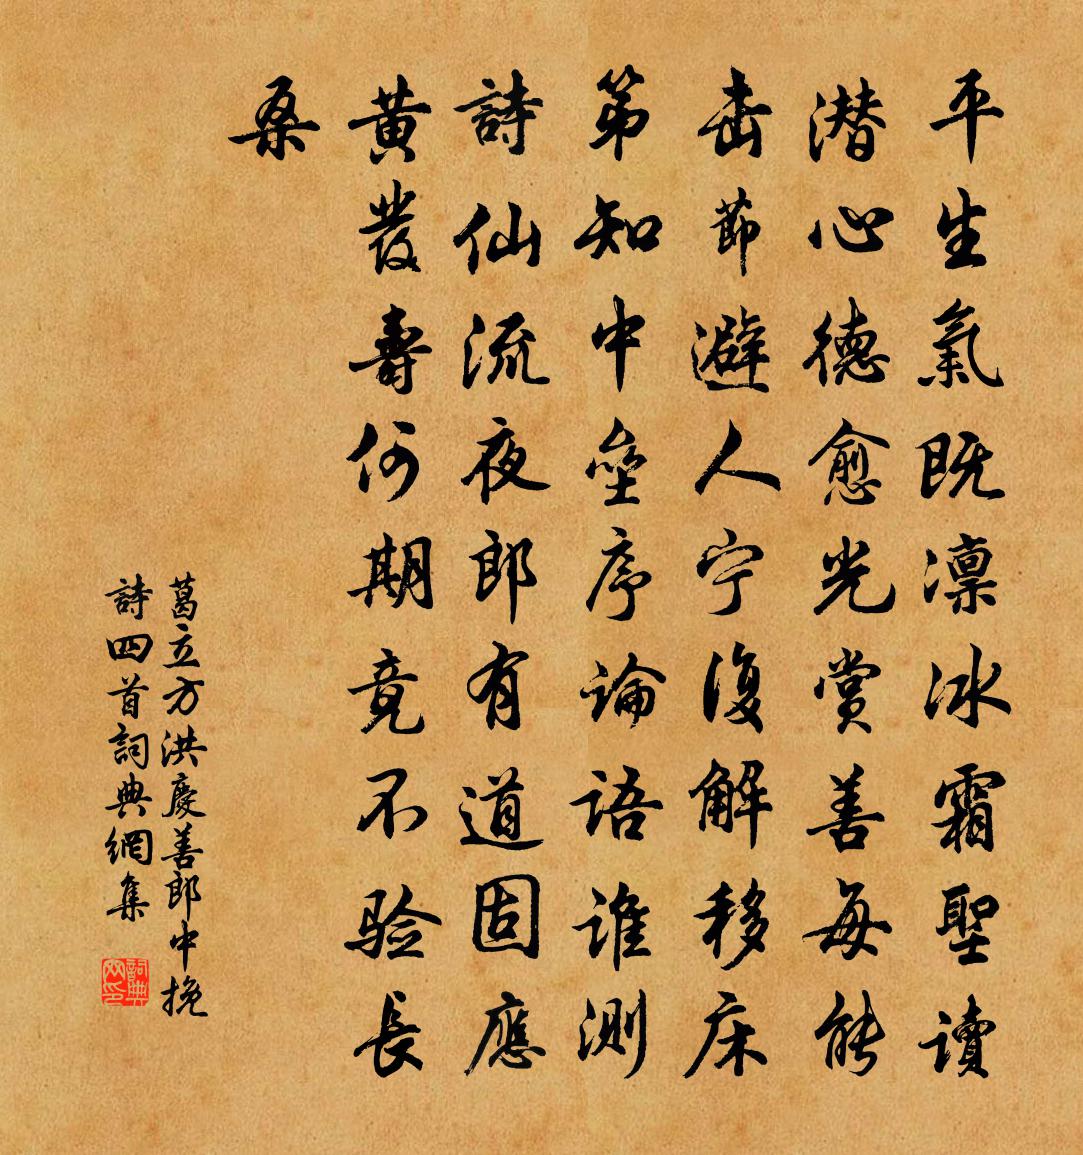 平生氣既凛冰霜聖讀
潜心德愈光賞善每能
击節避人宁復解移床
第知中壘序論語誰測
詩仙流夜郎有道固應
黄發壽何期竟不验長
桑
葛立方洪慶善郎中挽
詩四首詞典網集
詞典網印